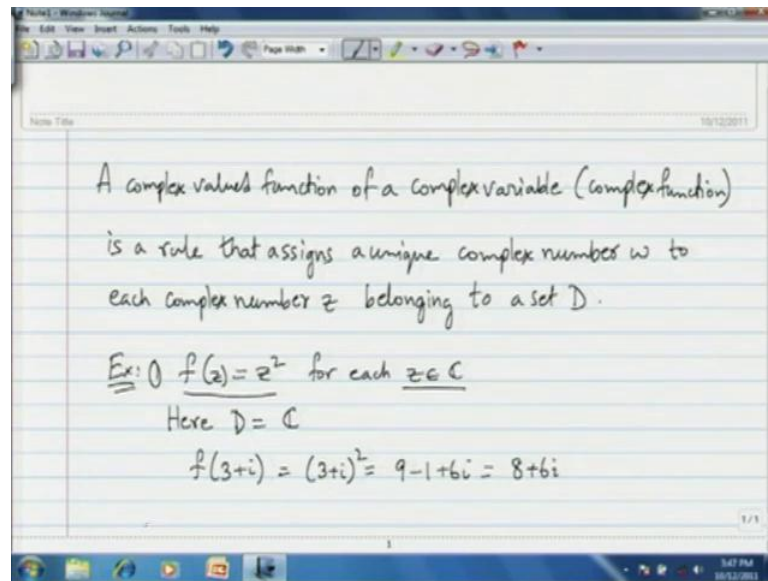 Note1 - Windows Journal
File Edit View Insert Actions Tools Help
Page Width
Note Title
10/12/2011
A complex valued function of a complex variable (complex function)
is a rule that assigns a unique complex number w to
each complex number z belonging to a set D.
Ex: ① f(z) = z² for each z ∈ ℂ
Here D = ℂ
f(3+i) = (3+i)² = 9-1+6i = 8+6i
1/1
1
3:47 PM
10/12/2011